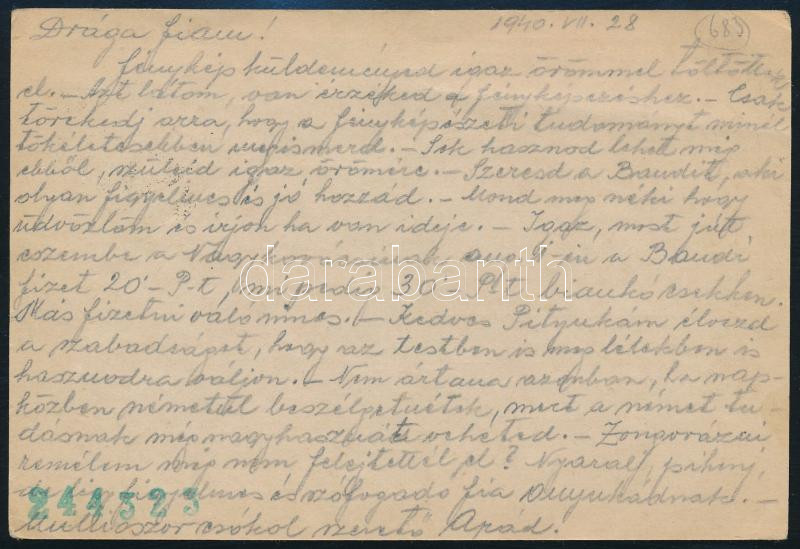 1940. VII. 28
683
Drága fiam!
Fénykép küldeményed igaz örömmel töltöttek
el. – Azt látom, van érzéked a fényképezéshez. – Csak
törekedj arra, hogy a fényképészeti tudományt minél
tökéletesebben megismerd. – Sok hasznod lehet még
ebből, szüleid igaz örömére. – Szeresd a Bandit, aki
olyan figyelmes és jó hozzád. – Mond meg néki hogy
üdvözlöm és irjon ha van ideje. – Igaz, most jút
eszembe a aug 1-én a Bandi
fizet 20'- P-t, mi pedig 30' P-t csekken.
Más fizetni való nincs. – Kedves Pityukám élvezd
a szabadságot, hogy az testben is meg lélekben is
hasznodra váljon. – Nem ártana azonban, ha nap-
közben németül beszélgetnétek, mert a német tu-
dásnak még nagy hasznát veheted. – Zongorázni
remélem még nem felejtettél el? Nyaralj, pihenj,
és szófogadó fia Anyukádnak. –
csókol szerető Apád.
244323
darabanth